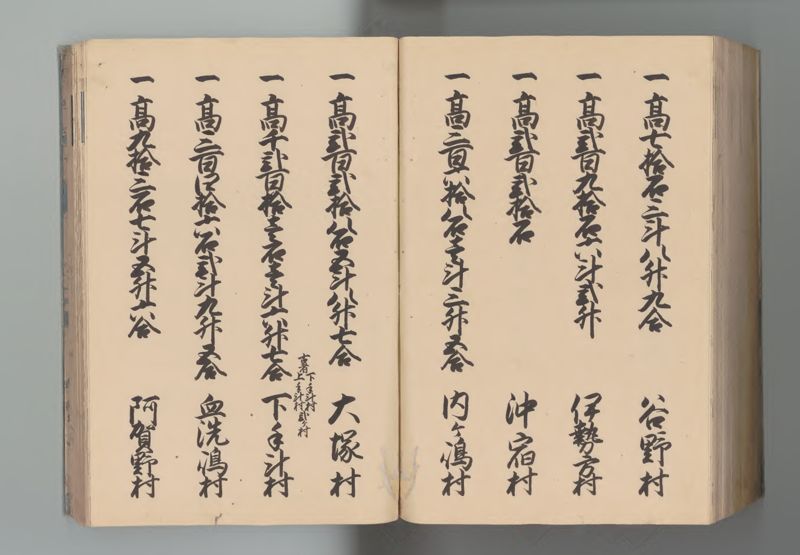 一 高七拾石三斗八升九合 谷野村
一 高弐百九拾石六斗弐升 伊勢方村
一 高弐百弐拾石 沖宿村
一 高三百六拾八石壱斗三升五合 内ヶ嶋村
一 高弐百弐拾八石五斗八升七合 大塚村
古者 下手斗村 上手斗村 弐ヶ村
一 高千弐百拾壱石壱斗六升七合 下手斗村
一 高三百四拾六石弐斗九升五合 血洗嶋村
一 高九拾三石七斗五升六合 阿賀野村